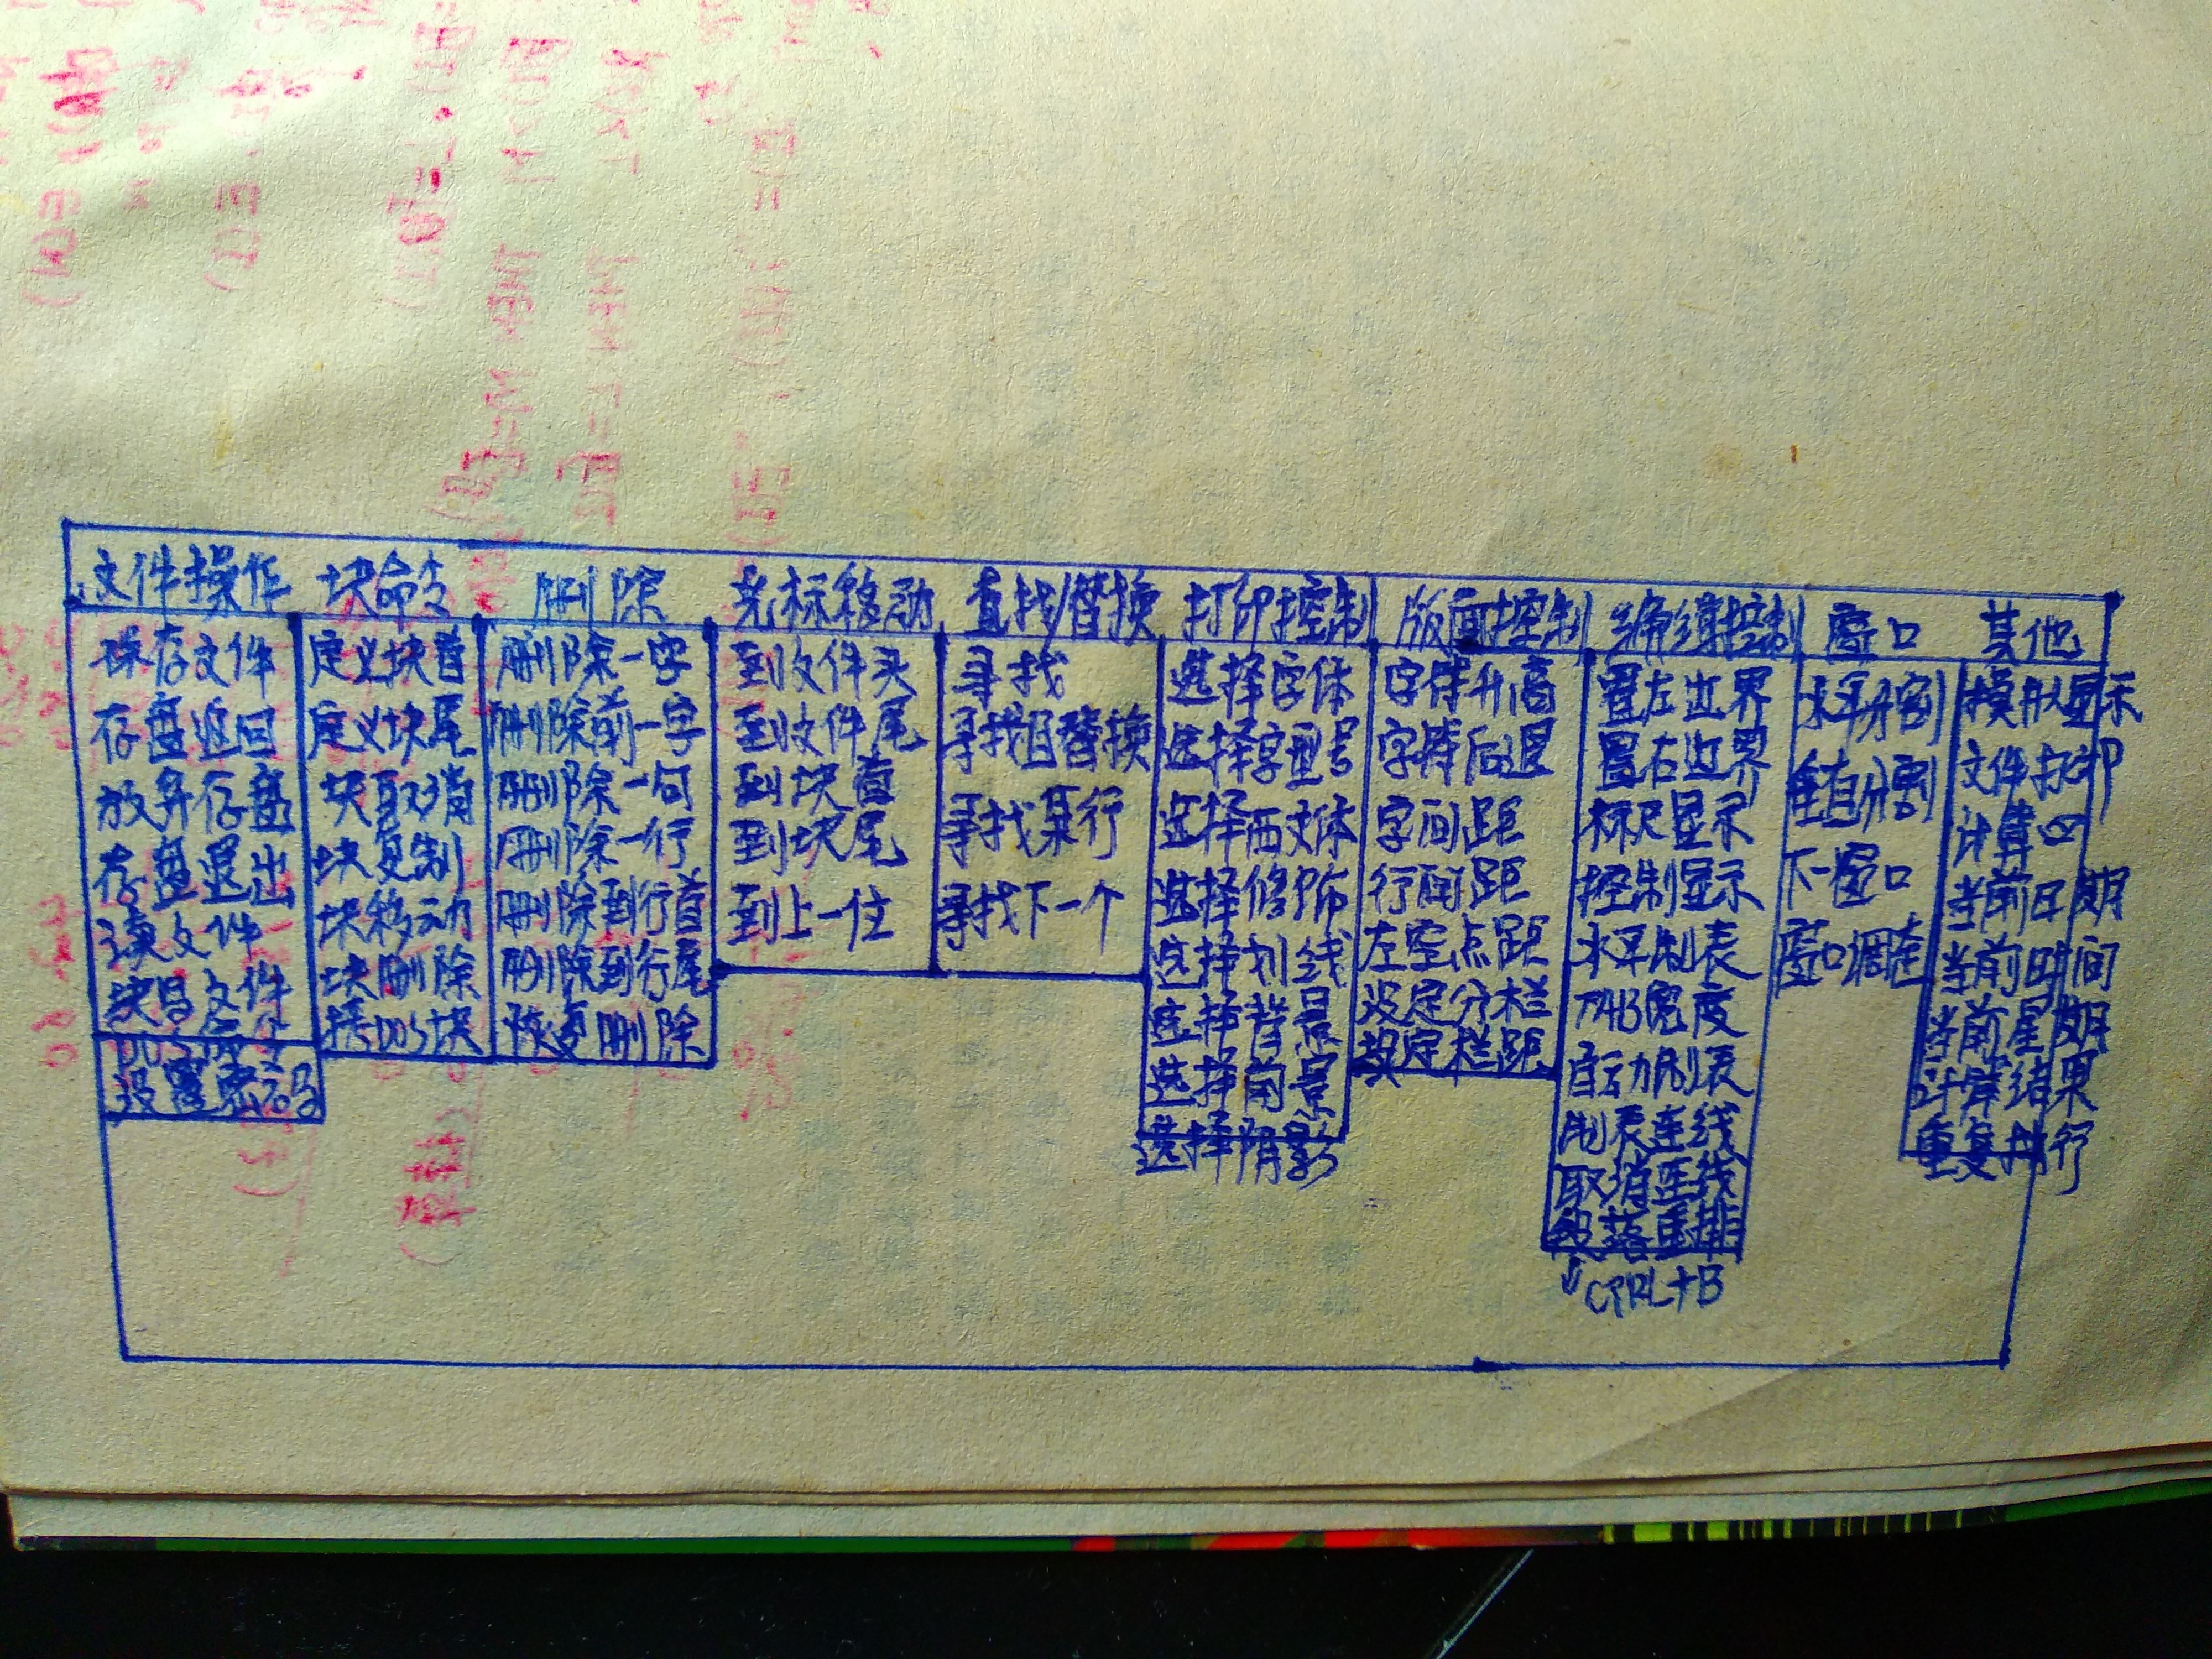 文件操作 块命令 删除 光标移动 查找/替换 打印控制 版面控制 编缉控制 窗口 其他
保存文件
存盘返回
放弃存盘
存盘退出
读文件
块写文件
设置密码
定义块首
定义块尾
块取消
块复制
块移动
块删除
接DOS块
删除一字
删除前一字
删除一句
删除一行
删除到行首
删除到行尾
恢复删除
到文件头
到文件尾
到块首
到块尾
到上一位
寻找
寻找且替换
寻找某行
寻找下一个
选择字体
选择字型号
选择西文体
选择修饰
选择划线
选择背景
选择前景
选择阴影
字符升高
字符后退
字间距
行间距
左空点距
设定分栏
设定栏距
置左边界
置右边界
标尺显示
控制显示
水平制表
TAB宽度
自动制表
制表连线
取消连线
段落重排
CTRL+B
水平分割
垂直分割
下一窗口
窗口调走
模形显示
文件打印
计算
当前日期
当前时间
当前星期
计算结果
重复执行